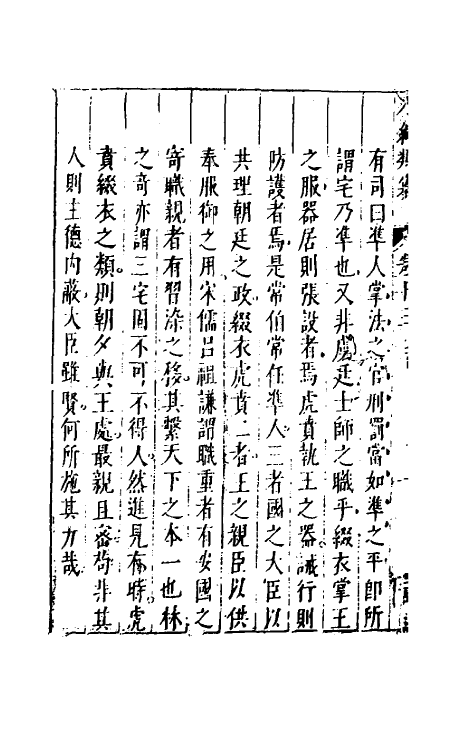 有司曰準人掌法之官刑罰當如準之平卽所
謂宅乃準也又非虞廷士師之職乎綴衣掌王
之服器居則張設者焉虎賁執王之器械行則
防護者焉是常伯常任準人三者國之大臣以
共理朝廷之政綴衣虎賁二者王之親臣以供
奉服御之用宋儒呂祖謙謂職重者有安國之
寄職親者有習染之移其繫天下之本一也林
之奇亦謂三宅固不可不得人然進見有時虎
賁綴衣之類則朝夕與王處最親且密苟非其
人則主德內蔽大臣雖賢何所施其力哉